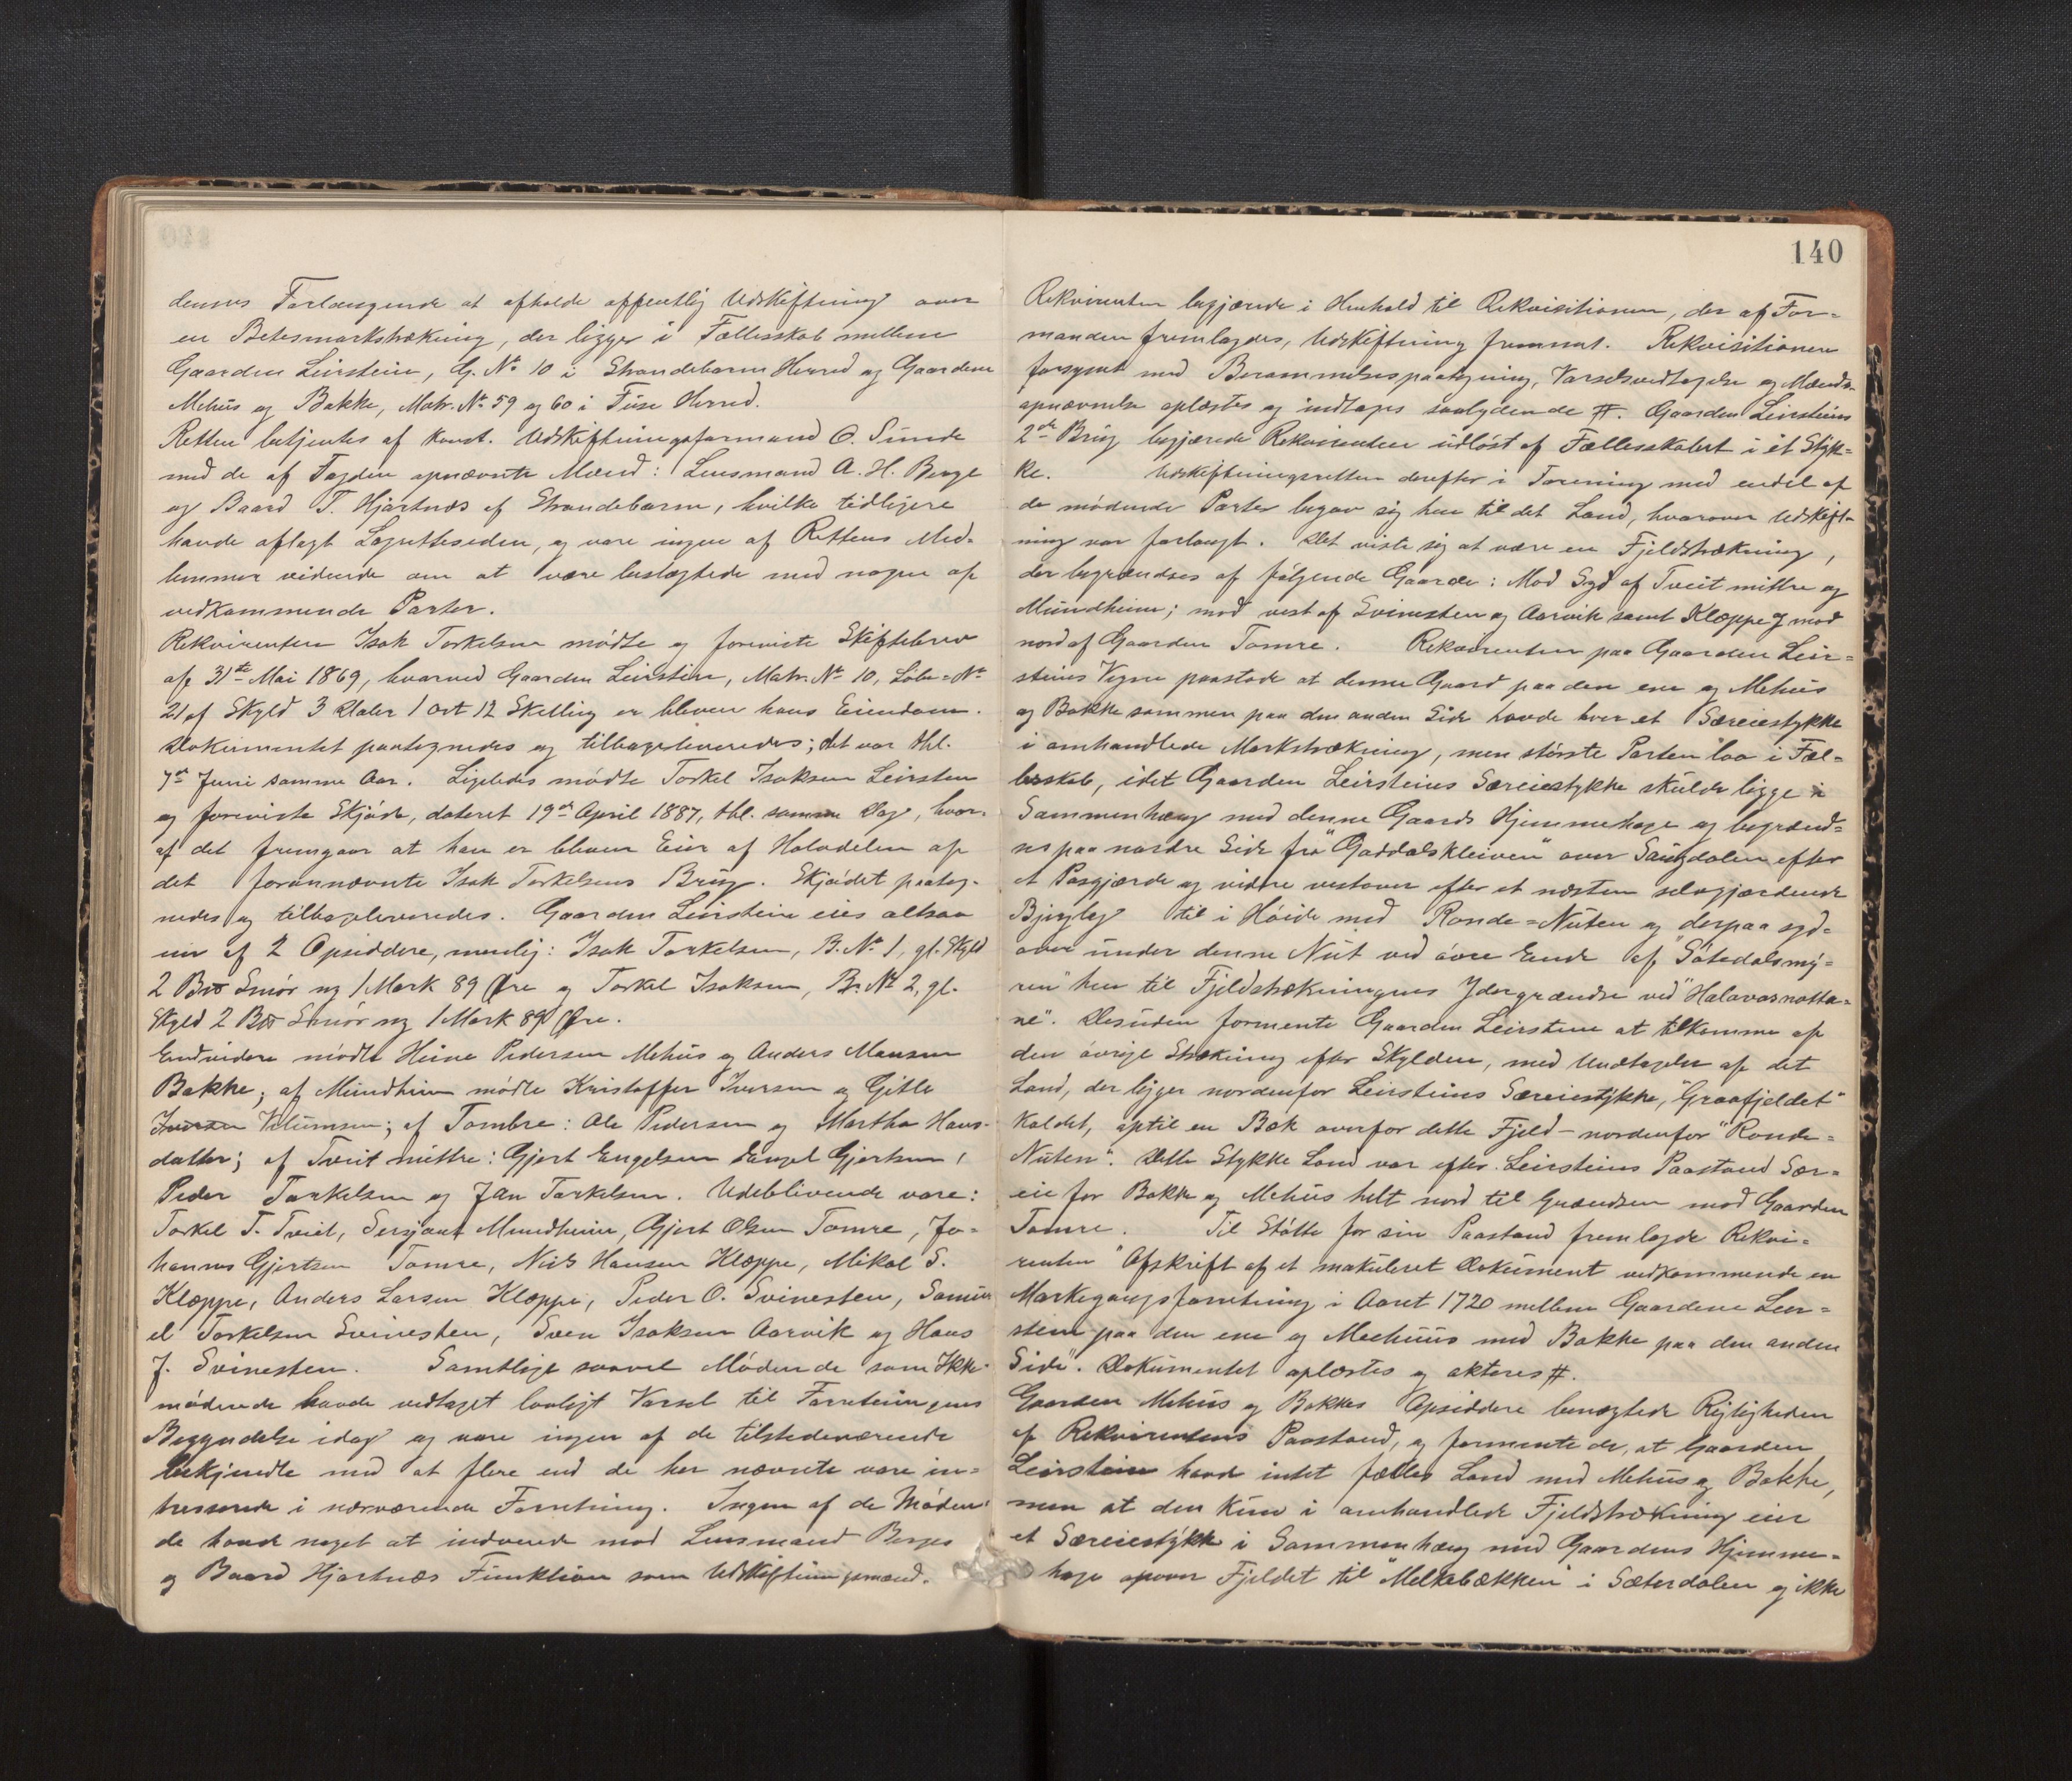 dennes Forlangende at afholde offentlig Udskiftning over
en Betesmarkstrækning, der ligger i Fællesskab mellem
Gaarden Leirstein, G. No 10 i Strandebarm Herred og Gaardene
Mehus og Bakke, Matr. No 59 og 60 i Fuse Herred.
Retten betjentes af Konst. Udskiftningsformand O. Sunde
med de af Fogden opnævnte Mænd: Lensmand A. H. Berge
og Baard T. Hjartnæs af Strandebarm, hvilke tidligere
havde aflagt Lagretteseden, og vare ingen af Rettens Med-
lemmer vidende om at være beslægtede med nogen af
vedkommende Parter.
Rekvirenten Isak Torkelsen mødte og foreviste Skiftebrev
af 31te Mai 1869, hvorved Gaarden Leirstein, Matr. No 10, Løbe=No
21 af Skyld 3 Daler 1 Ort 12 Skilling er bleven hans Eiendom.
Dokumentet paategnedes og tilbageleveredes; det var thl.
7de Juni samme Aar. Ligeledes mødte Torkel Isaksen Leirstein
og foreviste Skjøde, dateret 19de April 1887, thl. samme Dag, hvor-
af det fremgaar at han er bleven Eier af Halvdelen af
det forannævnte Isak Torkelsens Brug. Skjødet paateg-
nedes og tilbageleveredes. Gaarden Leirstein eies altsaa
nu af 2 Opsiddere, nemlig: Isak Torkelsen, B. No 1, gl. Skyld
2 Smør ny 1 Mark 89 Øre og Torkel Isaksen, Br. No 2, gl.
Skyld 2 Smør ny 1 Mark 89 Øre.
Endvidere mødte Heine Pedersen Mehus og Anders Monsen
Bakke; af Mundheim mødte Kristoffer Iversen og Gitle
Iversen; af Tombre: Ole Pedersen og Martha Hans-
datter; af Tveit mittre: Gjert Engelsen Engel Gjertsen,
Peder Torkelsen og Jan Torkelsen. Udeblivende vare:
Torkel T. Tveit, Sersjant Mundheim, Gjert Olsen Tomre, Jo-
hannes Gjertsen Tomre, Nils Hansen Kleppe, Mikal S.
Kleppe, Anders Larsen Kleppe, Peder O. Svinesten, Samu
el Torkelsen Svinesten, Sven Isaksen Aarvik og Hans
J. Svinesten. Samtlige saavel Mødende som Ikke
mødende havde vedtaget lovligt Varsel til Forretningens
Begyndelse idag og vare ingen af de tilstedeværende
bekjendte med at flere end de her nævnte vare in=
tresserede i nærværende Forretning. Ingen af de Møden-
de havde noget at indvende mod Lensmand Berges
og Baard Hjartnæs Funktion som Udskiftningsmænd.
140
Rekvirenten begjærede i Henhold til Rekvisitionen, der af For=
manden fremlagdes, Udskiftning fremmet. Rekvisitionen
forsynt med Berammelsespaategning, Varselsvedtagelse og Mænds-
opnævnelse oplæstes og indtages saalydende #. Gaarden Leirsteins
2de Brug begjærede Rekvirenten udløst af Fællesskabet i et Styk=
ke. Udskiftningsretten derefter i Forening med endel af
de mødende Parter begav sig hen til det Land, hvorover Udskift-
ning var forlangt. Det viste sig at være en Fjeldstrækning,
der begrændses af følgende Gaarde: Mod Syd af Tveit mittre og
Mundheim; mod vest af Svinesten og Aarvik samt Kleppe og mod
nord af Gaarden Tomre. Rekvirenten paa Gaarden Leir=
steins Vegne paastod at denne Gaard paa den ene og Mehus
og Bakke sammen paa den anden Side havde hver et Særeiestykke
i omhandlede Markstrækning, men største Parten laa i Fæl=
lesskab, idet Gaarden Leirsteins Særeiestykke skulde ligge i
Sammenhæng med denne Gaards Hjemmehage og begrænd=
ses paa nordre Side fra "Gaddalskleiven" over Saugdalen efter
et Rasgjærde og videre vestover efter et næsten selvgjærdende
Bjerglag til i Høide med Ronde=Nuten og derpaa syd=
over under denne Nut ved øvre Ende af "Søtedalsmy=
ren" hen til Fjeldstrækningens Ydergrændse ved "Halavasnotta=
ne". Desuden formente Gaarden Leirstein at tilkomme af
den øvrige Strækning efter Skylden, med Undtagelse af det
Land, der ligger nordenfor Leirsteins Særeiestykke, "Graafjeldet"
kaldet, optil en Bæk ovenfor dette Fjeld – nordenfor "Ronde=
Nuten". Dette Stykke Land var efter Leirsteins Paastand Sær=
eie for Bakke og Mehus helt nord til Grændsen mod Gaarden
Tomre. Til Støtte for sin Paastand fremlagde Rekvi=
renten "Afskrift af et makuleret Dokument vedkommende en
Markegangsforretning i Aaret 1720 mellem Gaardene Leer=
sten paa den ene og Meehuus med Bakke paa den anden
Side". Dokumentet oplæstes og akteres #.
Gaarden Mehus og Bakkes Opsiddere benægtede Rigtigheden
af Rekvirentens Paastand, og formente de, at Gaarden
Leirstein havde intet fælles Land med Mehus og Bakke,
men at den kun i omhandlede Fjeldstrækning eier
et Særeiestykke i Sammenhæng med Gaardens Hjemme=
hage opover Fjeldet til "Melkebækken" i Sæterdalen og ikke